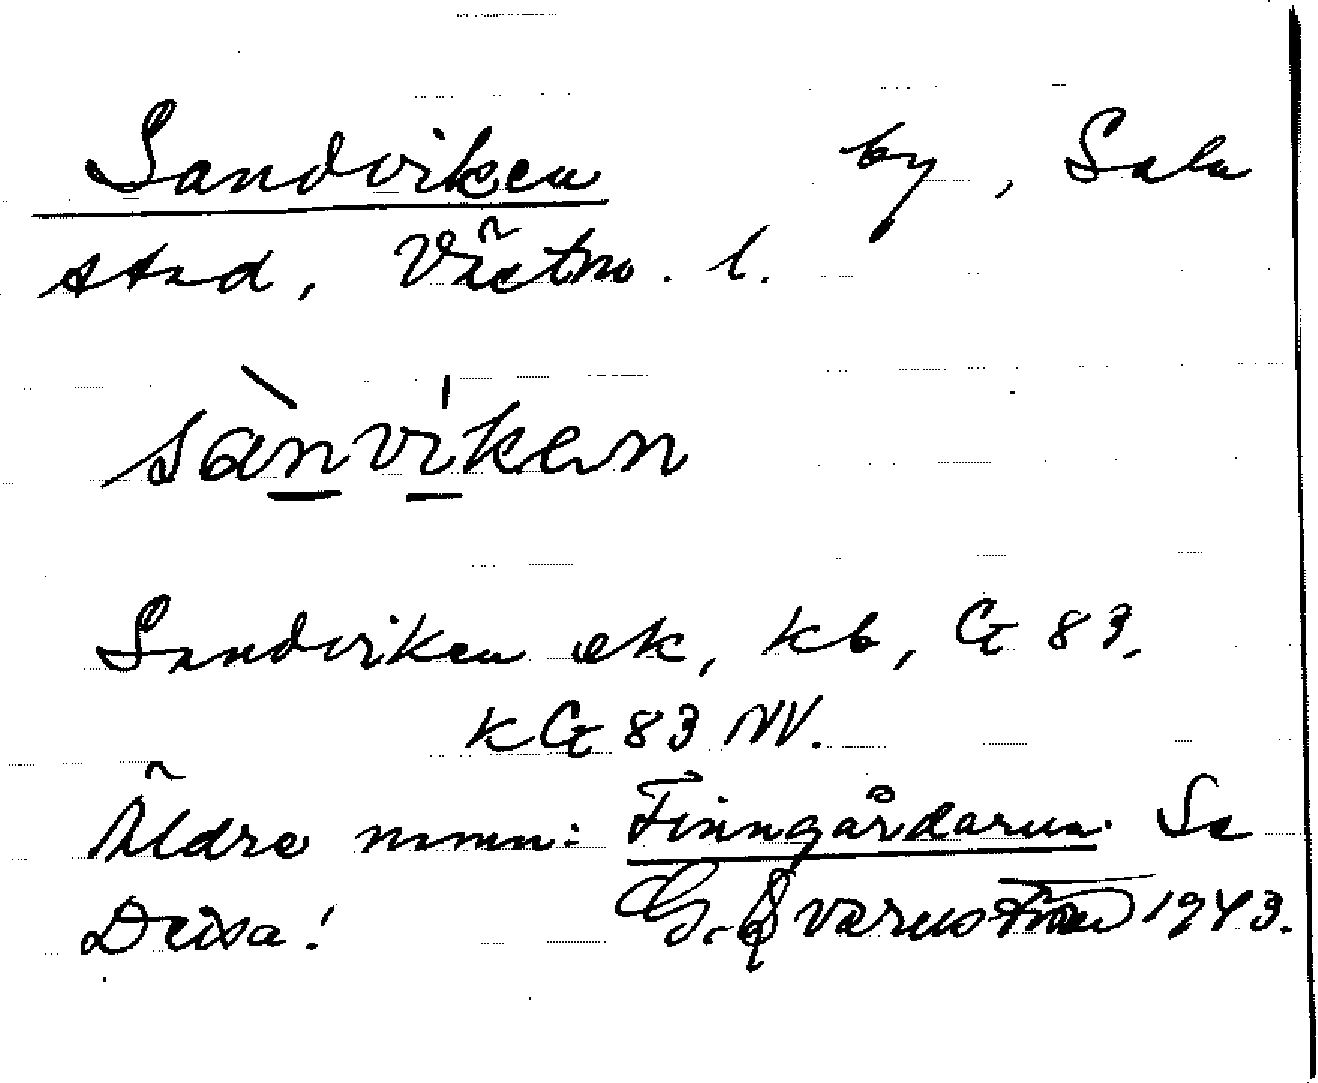 Sandviken by, Sala
stad, Västm. l.
sànvi'ken
Sandviken ek, kb, G 83.
k G 83 NV.
Äldre namn: Finngårdarna. Se
Dessa! G. Qvarnström 1943.